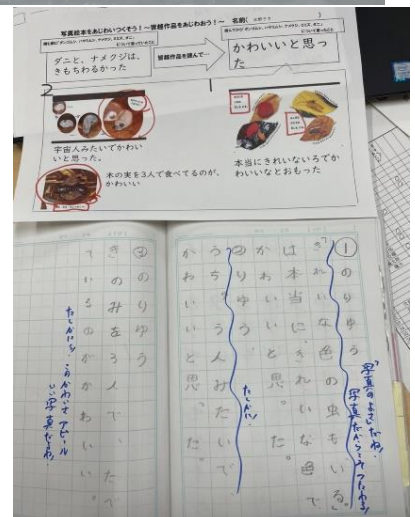 写真絵本をあじわいつくそう！～皆越作品をあじわおう！～ 名前(
ダニと、ナメクジは、
きもちわるかった
皆越作品を読んで…
かわいいと思っ
た
2
1
宇宙人みたいでかわい
いと思った。
木の実を3人で食べてるのが、
かわいい
本当にきれいないろでか
わいいなとおもった
①のりゆう
きれいな色の虫もいる。
は本当に、きれいな色で
かわいいと思った。
②りゆう
うちゅう人みたいで
かわいいと思った。
③のりゆう
きのみを3人で、たべ
ているのがかわいい。
写真のよさだね!
写真だからこそつたわる!
たしかに!
たしかに!
このかわいさアピール
いい写真だよね!